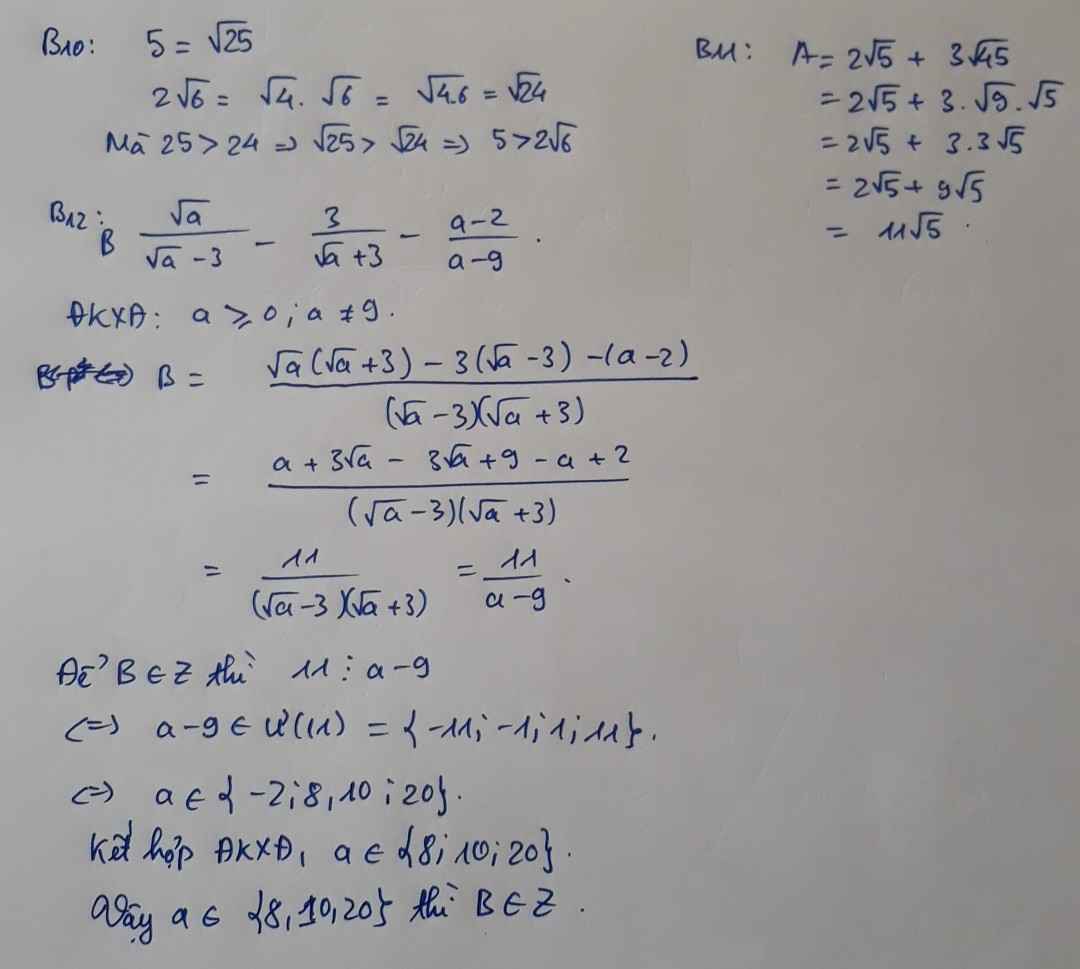 B10: 5 = √25
2√6 = √4 . √6 = √4.6 = √24
Mà 25 > 24 => √25 > √24 => 5 > 2√6
B11: A = 2√5 + 3√45
= 2√5 + 3 . √9 . √5
= 2√5 + 3.3√5
= 2√5 + 9√5
= 11√5 .
B12: B √a / (√a - 3) - 3 / (√a + 3) - (a - 2) / (a - 9) .
ĐKXĐ: a ⩾ 0 ; a ≠ 9 .
B = (√a(√a + 3) - 3(√a - 3) - (a - 2)) / ((√a - 3)(√a + 3))
= (a + 3√a - 3√a + 9 - a + 2) / ((√a - 3)(√a + 3))
= 11 / ((√a - 3)(√a + 3)) = 11 / (a - 9) .
Để B ∈ Z thì 11 ⋮ a - 9
<=> a - 9 ∈ Ư(11) = {-11; -1; 1; 11}.
<=> a ∈ {-2; 8, 10 ; 20}.
Kết hợp ĐKXĐ, a ∈ {8; 10; 20} .
Vậy a ∈ {8, 10, 20} thì B ∈ Z .